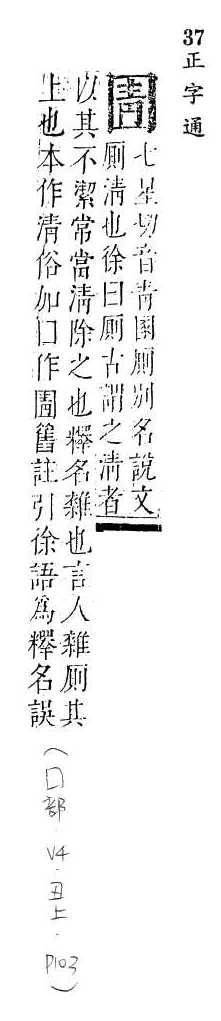 37正字通
圊
七星切音靑圂厠別名說文
厠清也徐曰厠古謂之清者
以其不絜常當清除之也釋名雜也言人雜厠其
上也本作清俗加囗作圊舊註引徐語爲釋名誤
(囗部．V4．丑上．P103)